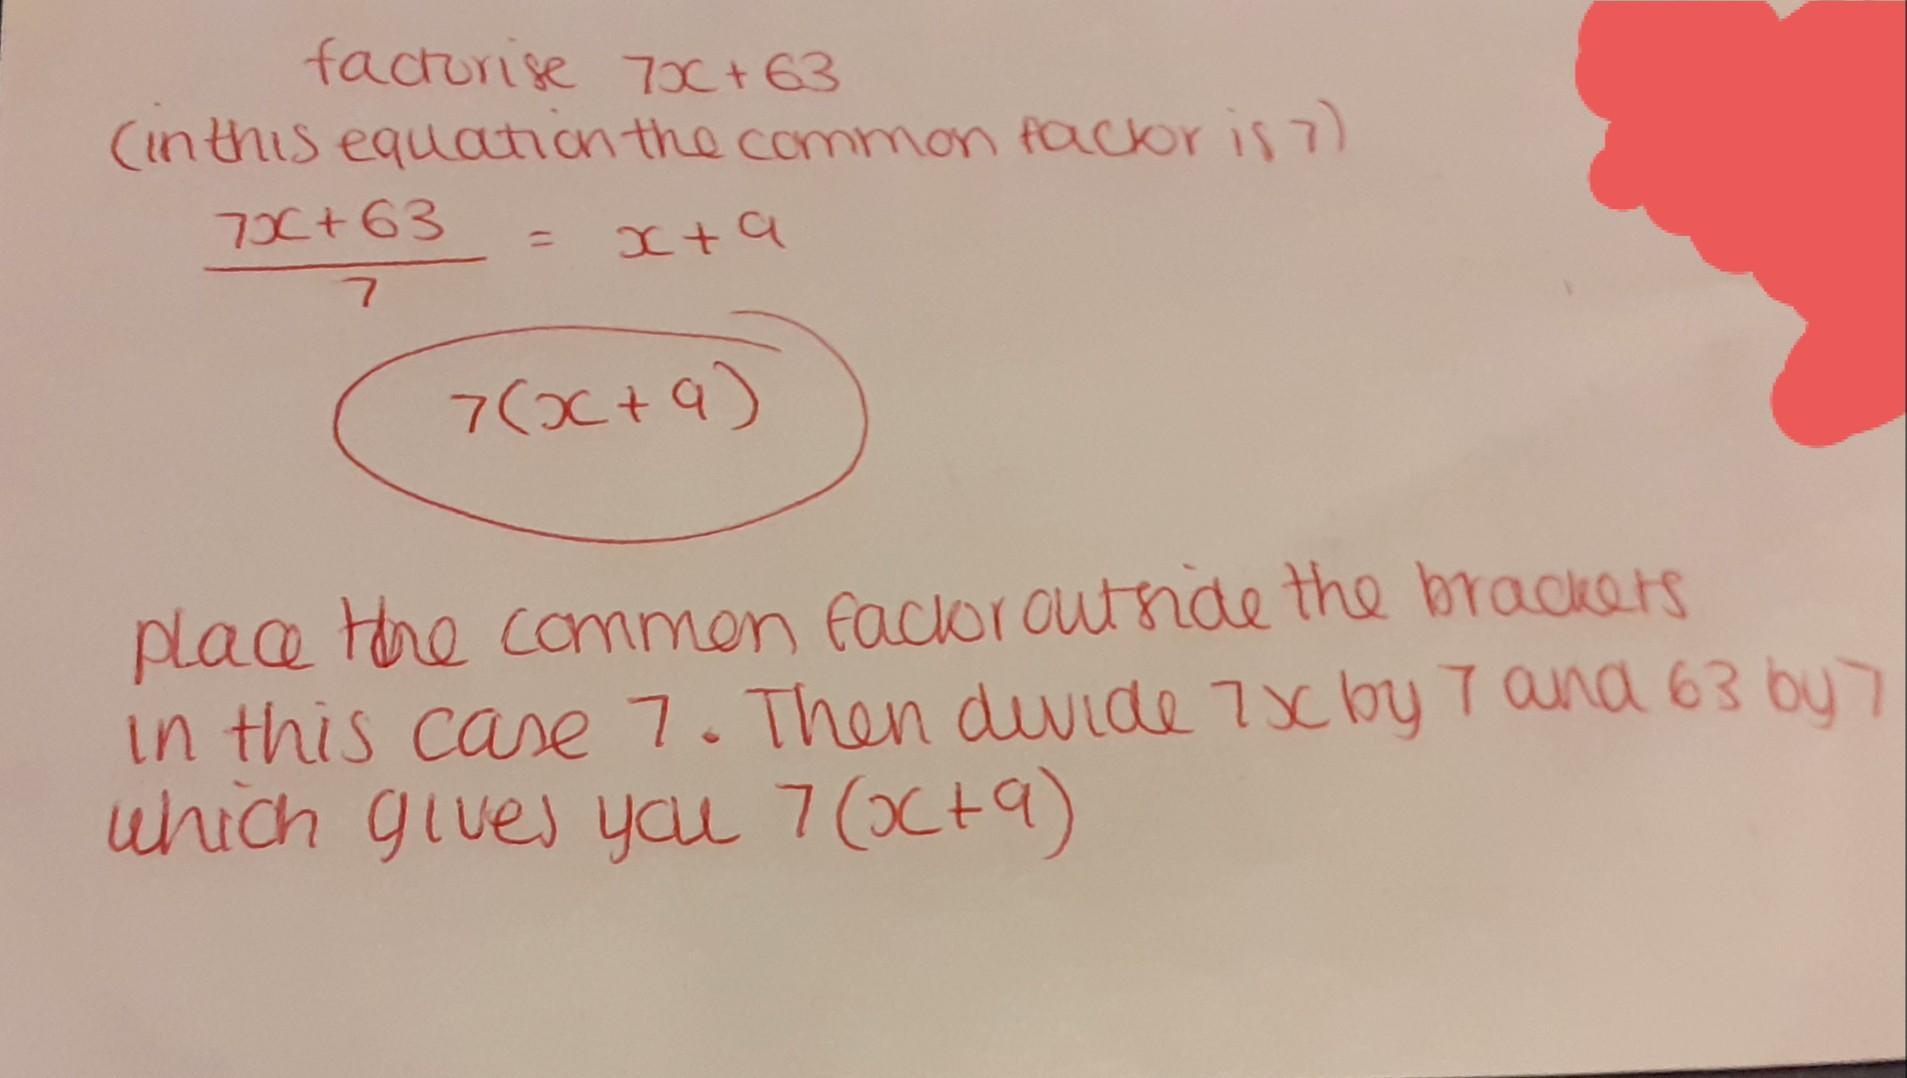 factorise 7x + 63
(in this equation the common factor is 7)
7x + 63
7
= x + 9
7(x + 9)
place the common factor outside the brackets
in this case 7. Then divide 7x by 7 and 63 by 7
which gives you 7(x+9)